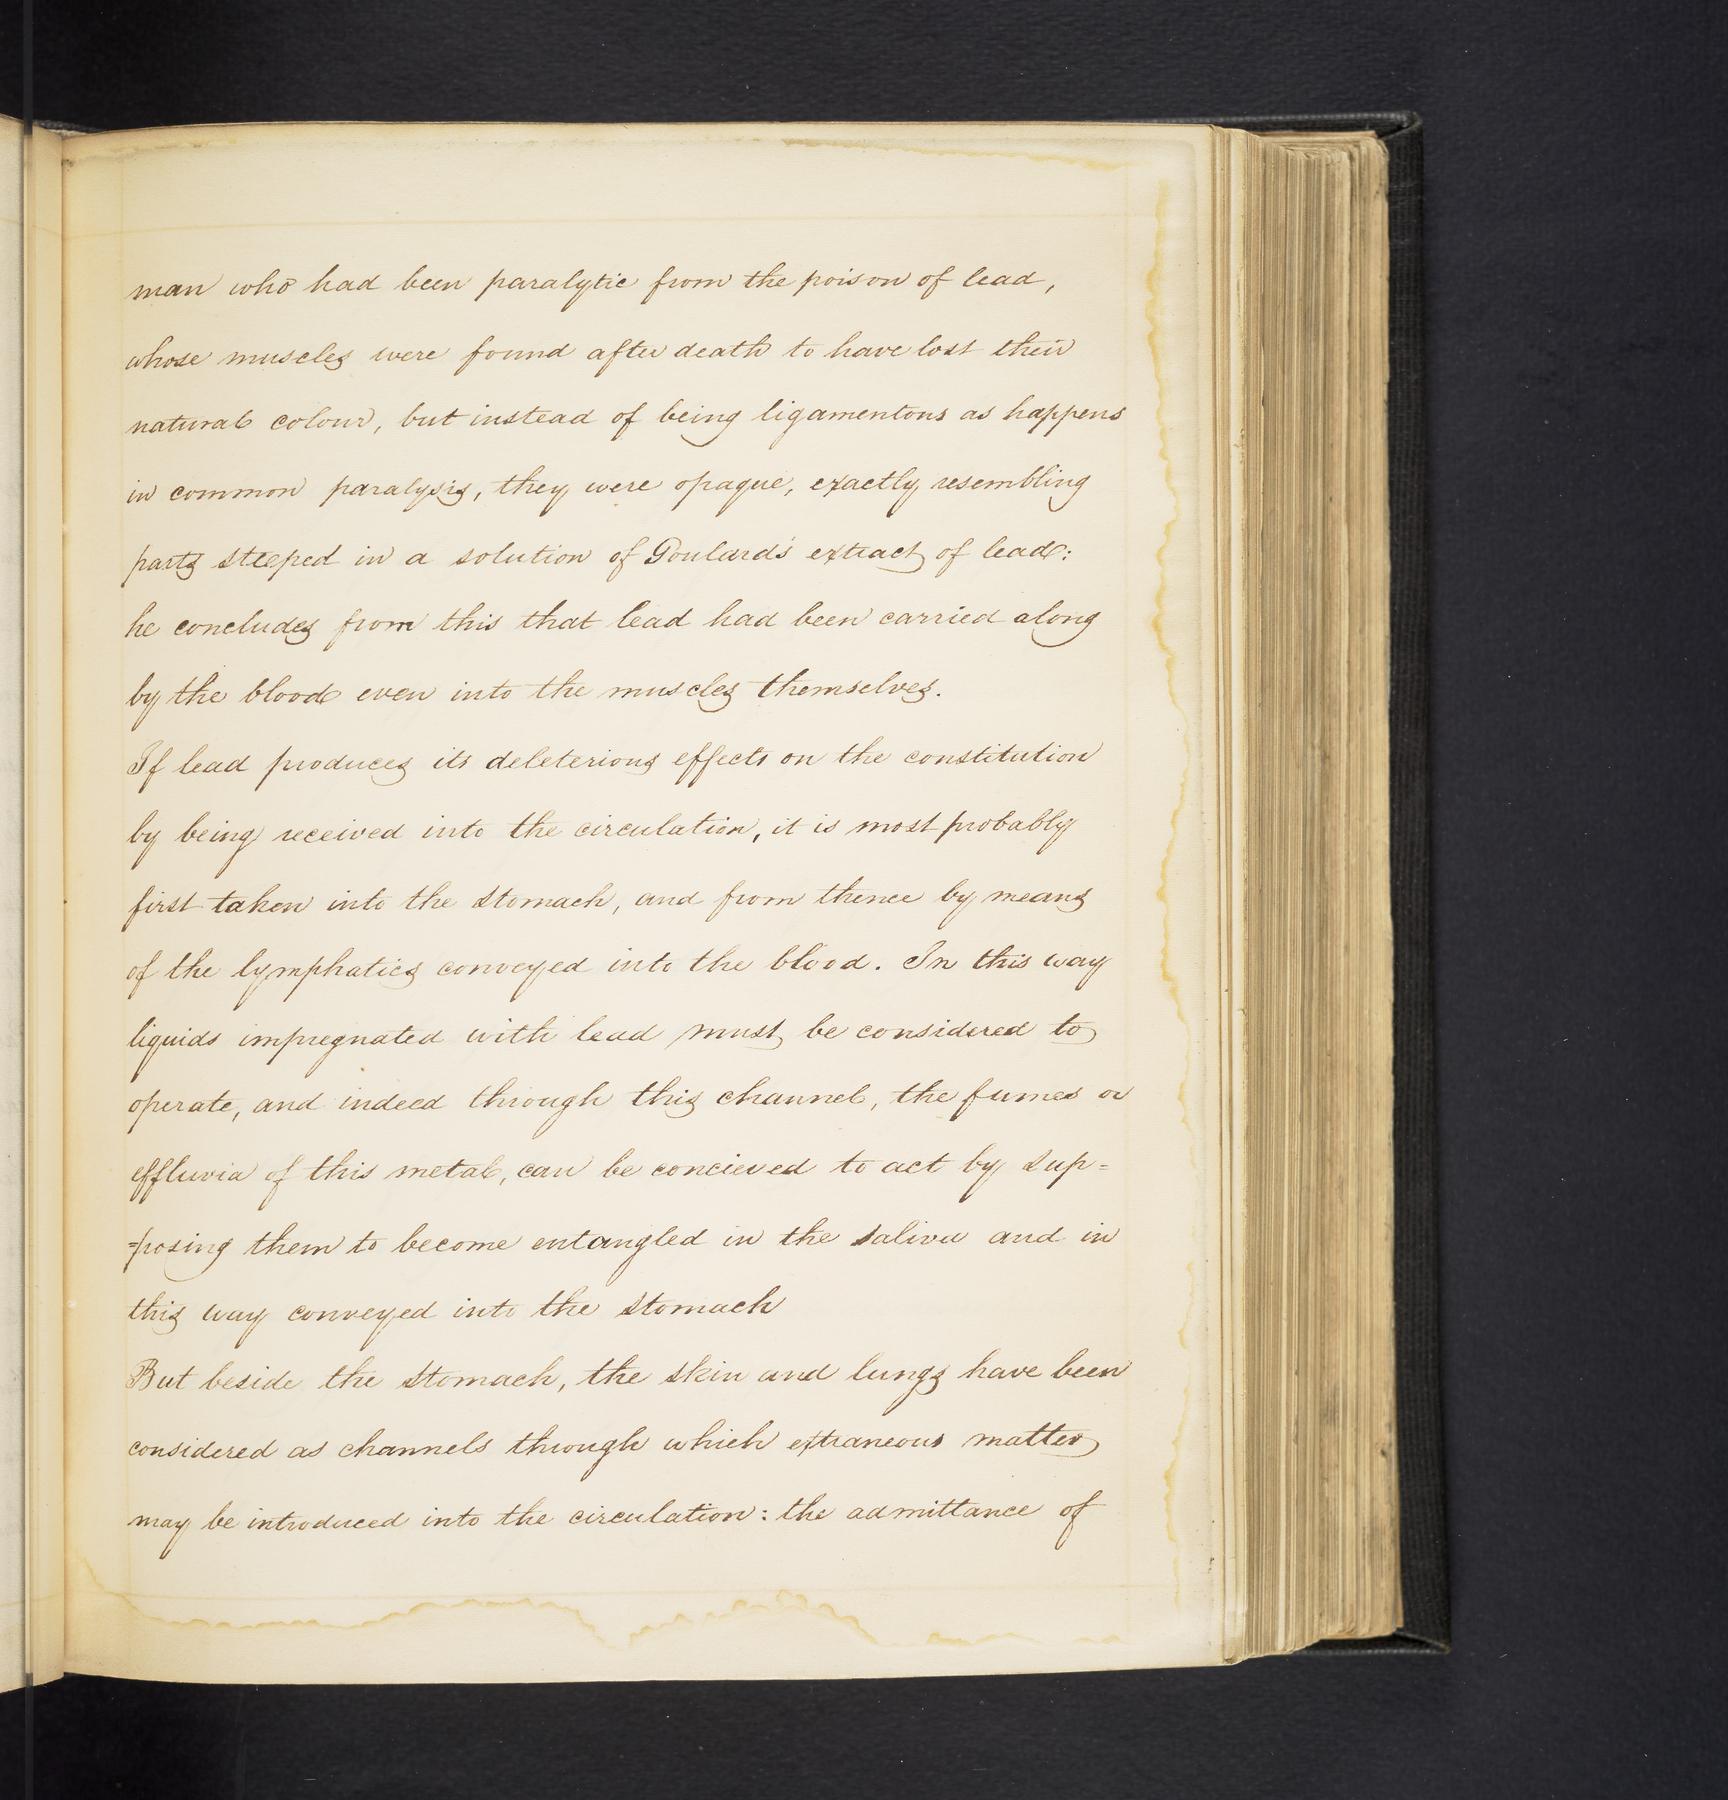 man who had been paralytic from the poison of lead,
whose muscles were found after death to have lost their
natural colour, but instead of being ligamentous as happens
in common paralysis, they were opaque, exactly resembling
parts steeped in a solution of Goulard's extract of lead:
he concludes from this that lead had been carried along
by the blood even into the muscles themselves.
If lead produces its deleterious effects on the constitution
by being received into the circulation, it is most probably
first taken into the stomach, and from thence by means
of the lymphatics conveyed into the blood. In this way
liquids impregnated with lead must be considered to
operate, and indeed through this channel, the fumes or
effluvia of this metal, can be concieved to act by sup=
=posing them to become entangled in the saliva and in
this way conveyed into the stomach
But beside the stomach, the skin and lungs have been
considered as channels through which extraneous matter
may be introduced into the circulation: the admittance of